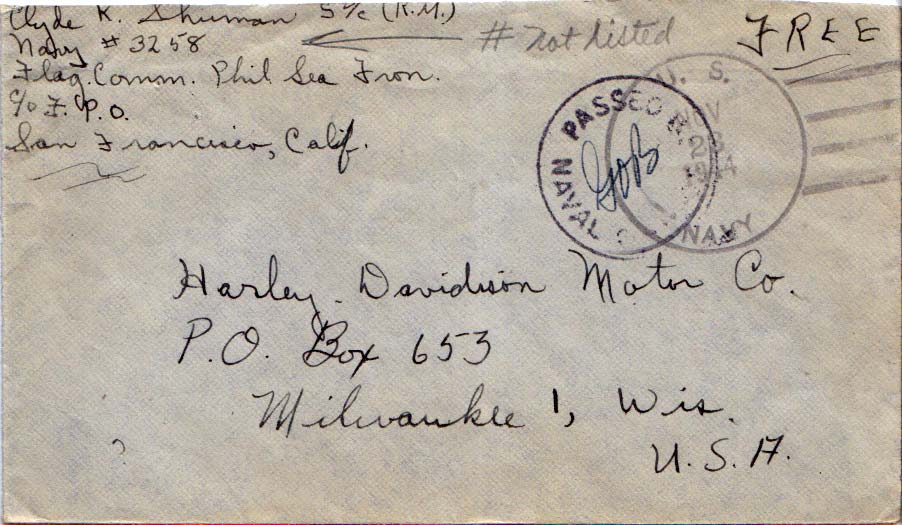 Clyde R. Shuman S 1/c (R.M.)
Navy # 3258
# not listed
FREE
Flag. Comm. Phil Sea Fron.
c/o F. P.O.
San Francisco, Calif.
PASSED BY
NAVAL
U. S.
NOV
1944
NAVY
Harley-Davidson Motor Co.
P.O. Box 653
Milwaukee 1, Wis.
U.S.A.